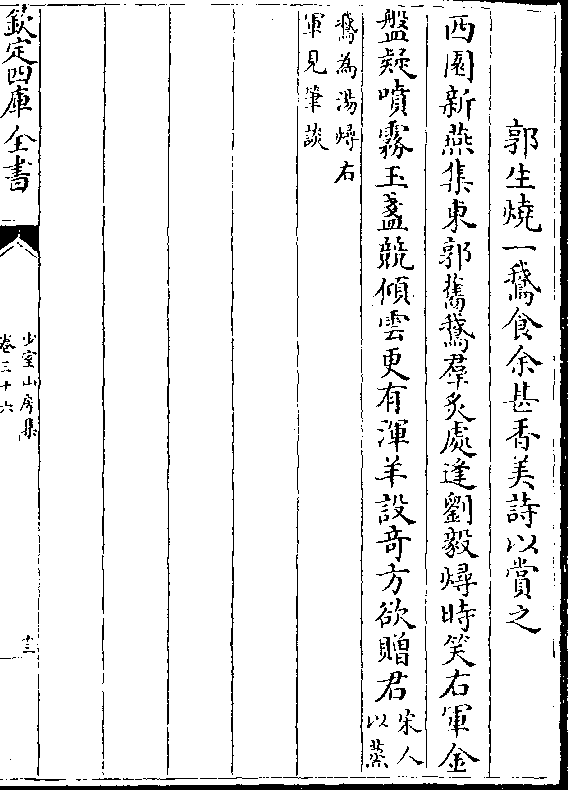 郭生燒一鵞食余甚香美詩以賞之
西園新燕集東郭舊鵞羣炙處逢劉毅燖時笑右軍金
盤疑噴霧玉盞競傾雲更有渾羊設奇方欲贈君宋人以蒸
鵞為湯燖右軍見筆談
欽定四庫全書
少室山房集
卷三十六
十三